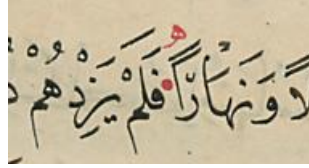 لًا وَنَهَارًا فَلَمْ يَزِدْهُمْ